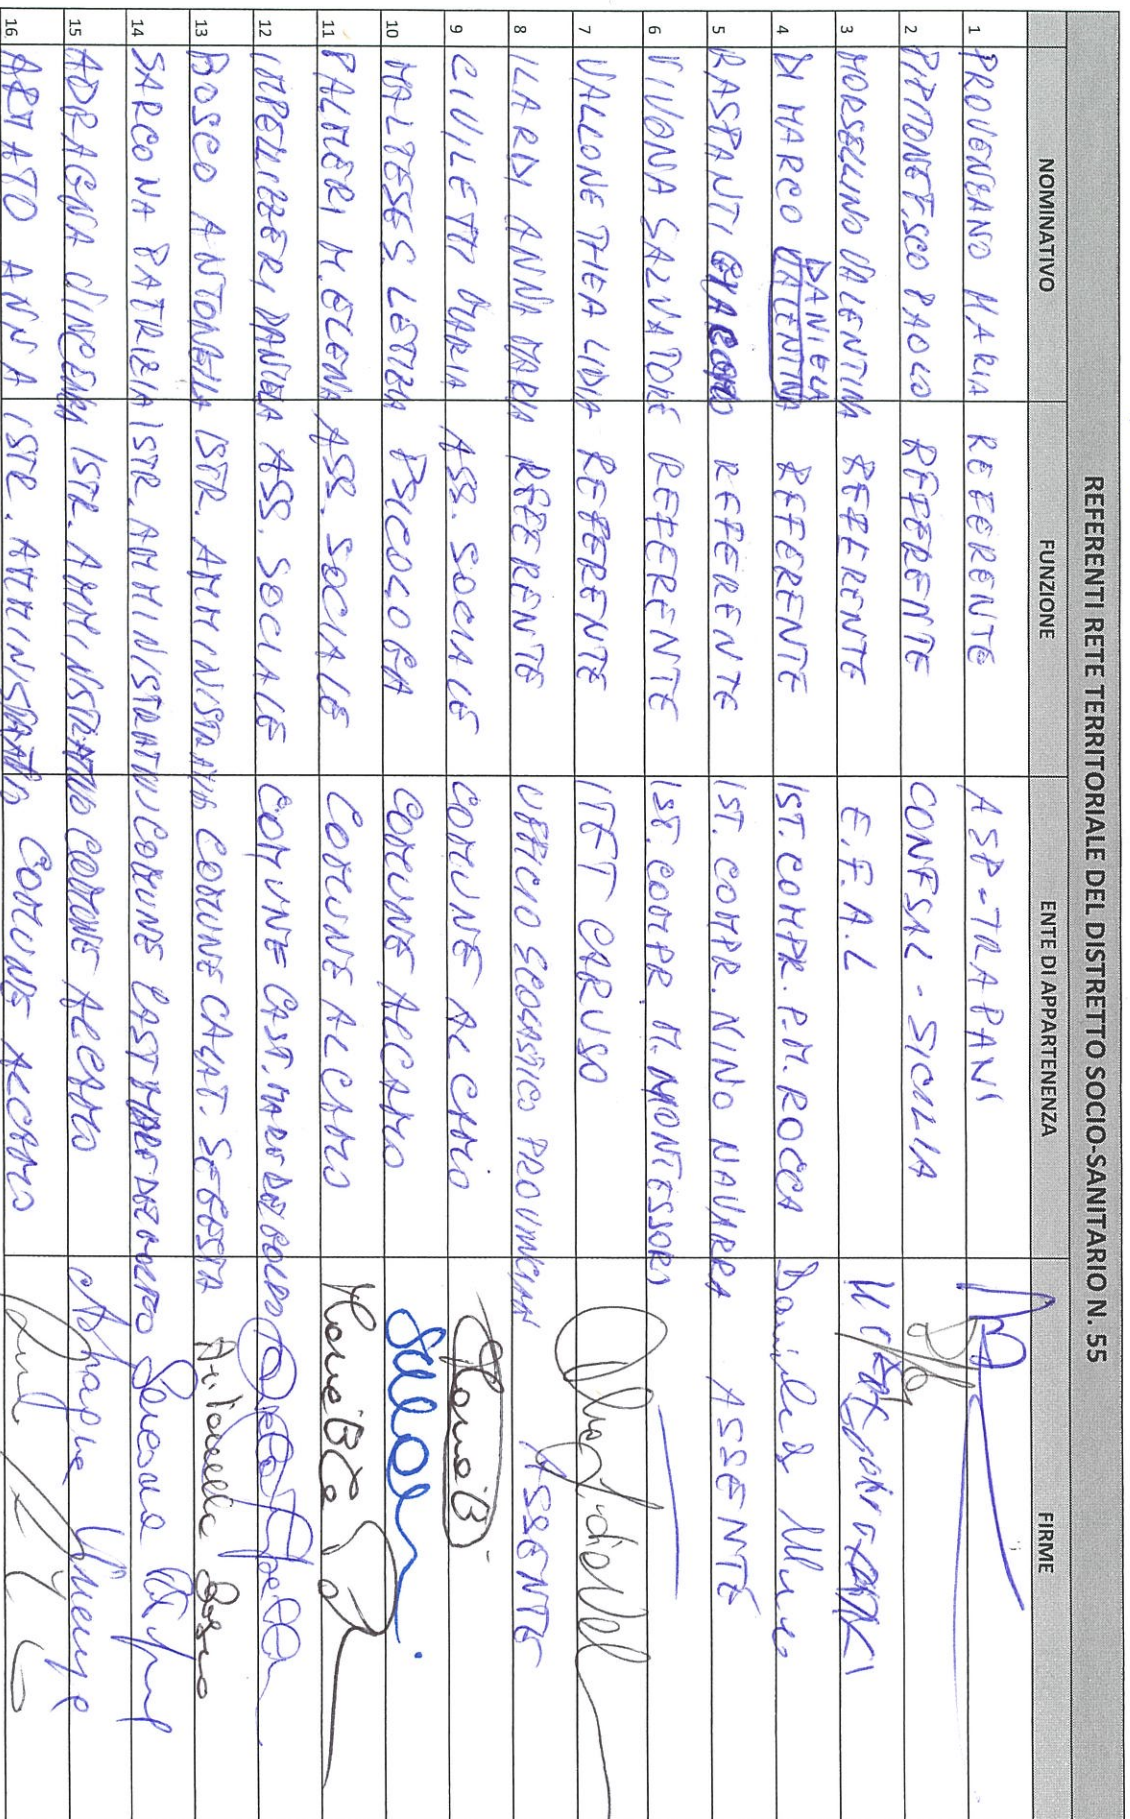 REFERENTI RETE TERRITORIALE DEL DISTRETTO SOCIO-SANITARIO N. 55
NOMINATIVO FUNZIONE ENTE DI APPARTENENZA FIRME
1 PROVENZANO MARIA REFERENTE ASP-TRAPANI
2 PIPITONE F.SCO PAOLO REFERENTE CONFSAL - SICILIA
3 MORSELLINO VALENTINA REFERENTE E.F.A.L
4 DI MARCO VALENTINA DANIELA REFERENTE IST. COMPR. P.M. ROCCA Daniela Di Marco
5 RASPANTI REFERENTE IST. COMPR. NINO NAVARRA ASSENTE
6 VIVONA SALVATORE REFERENTE IST. COMPR M. MONTESSORI
7 VALLONE THEA LIDIA REFERENTE ITET CARUSO
8 ILARDI ANNA MARIA REFERENTE UFFICIO SCOLASTICO PROVINCIAL ASSENTE
9 CIVILETTI MARIA ASS. SOCIALE COMUNE ALCAMO
10 MALTESE S LETIZIA PSICOLOGA COMUNE ALCAMO
11 PALMERI M. ELENA ASS. SOCIALE COMUNE ALCAMO
12 IMPELLIZZERI DANIELA ASS. SOCIALE COMUNE CAST. MARE DEL GOLFO
13 BOSCO ANTONELLA ISTR. AMMINISTRATIVO COMUNE CALAT. SEGESTA Antonella Bosco
14 SARCONA PATRIZIA ISTR. AMMINISTRATIVO COMUNE CASTMARE DEL GOLFO
15 ADRAGNA VINCENZA ISTR. AMMINISTRATIVO COMUNE ALCAMO Adragna
16 ANNA ISTR. AMMINISTRATIVO COMUNE ALCAMO